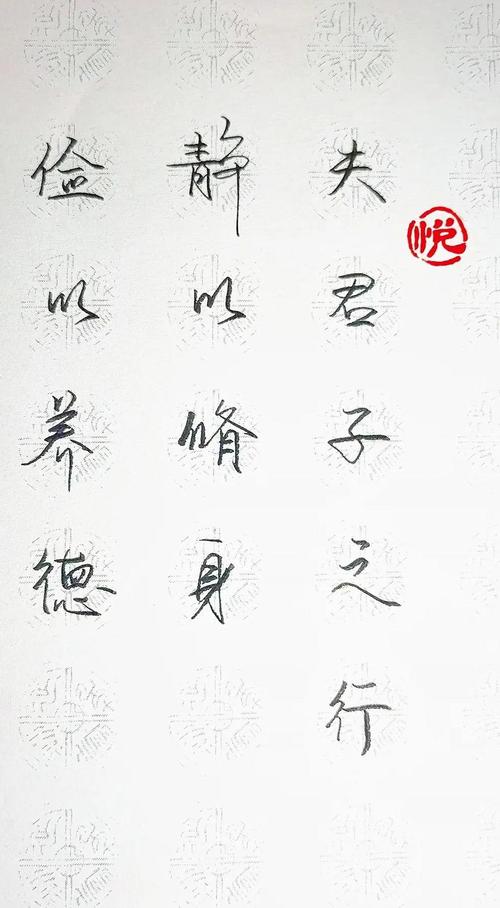 夫君子之行
静以脩身
俭以养德
悦